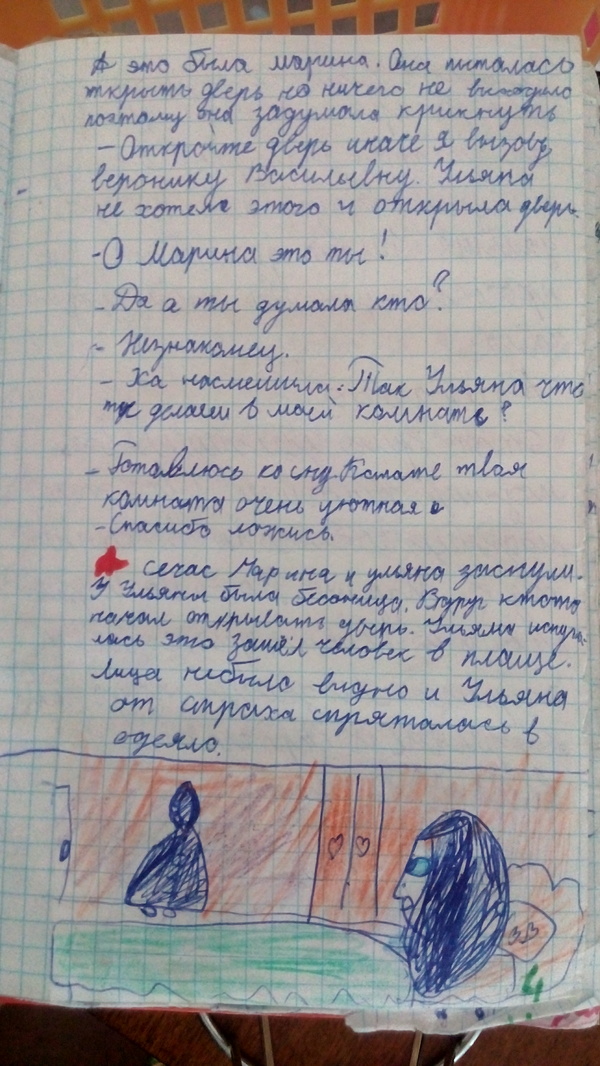 А это была марина. Она питалась
ткрыть дверь но ничего не выходило
поэтому она задумала крикнуть
- Откройте дверь иначе я вызову
веронику Васильевну. Ульяна
не хотела этого и открыла дверь.
- О Марина это ты!
- Да а ты думала кто?
- Незнакомец.
- Ха насмешила. Так Ульяна что
ты делаеш в моей комнате?
- Готовлюсь ко сну. Кстате твоя
комната очень уютная.
- Спасибо ложись.
сечас Марина и ульяна заснули.
У Ульяны была бесоница. Вдруг ктото
начал открывать дверь. Ульяна испуга-
лась это зашёл человек в плаще.
Лица небыло видно и Ульяна
от страха спряталась в
одеяло.
4